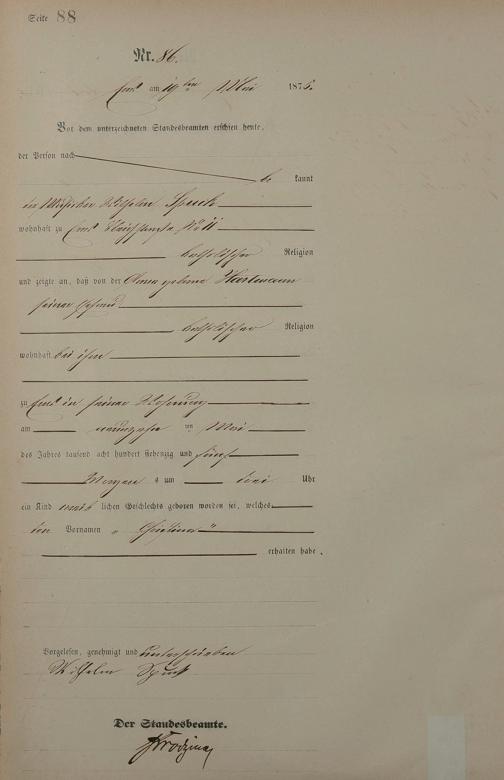 Seite 88
Nr. 86.
Ems am 19ten Mai 1875.
Vor dem unterzeichneten Standesbeamten erschien heute,
der Person nach
be kannt
der Wilhelm Spuck
wohnhaft zu Ems No 11
katholischer Religion
und zeigte an, daß von der Anna geborne Hartmann
seiner Ehefrau
katholischer Religion
wohnhaft bei ihm
zu Ems in seiner Wohnung
am neunzehn ten Mai
des Jahres tausend acht hundert siebenzig und fünf
Morgens um drei Uhr
ein Kind weib lichen Geschlechts geboren worden sei, welches
den Vornamen „ "
erhalten habe.
Vorgelesen, genehmigt und unterschrieben
Wilhelm Spuck
Der Standesbeamte.